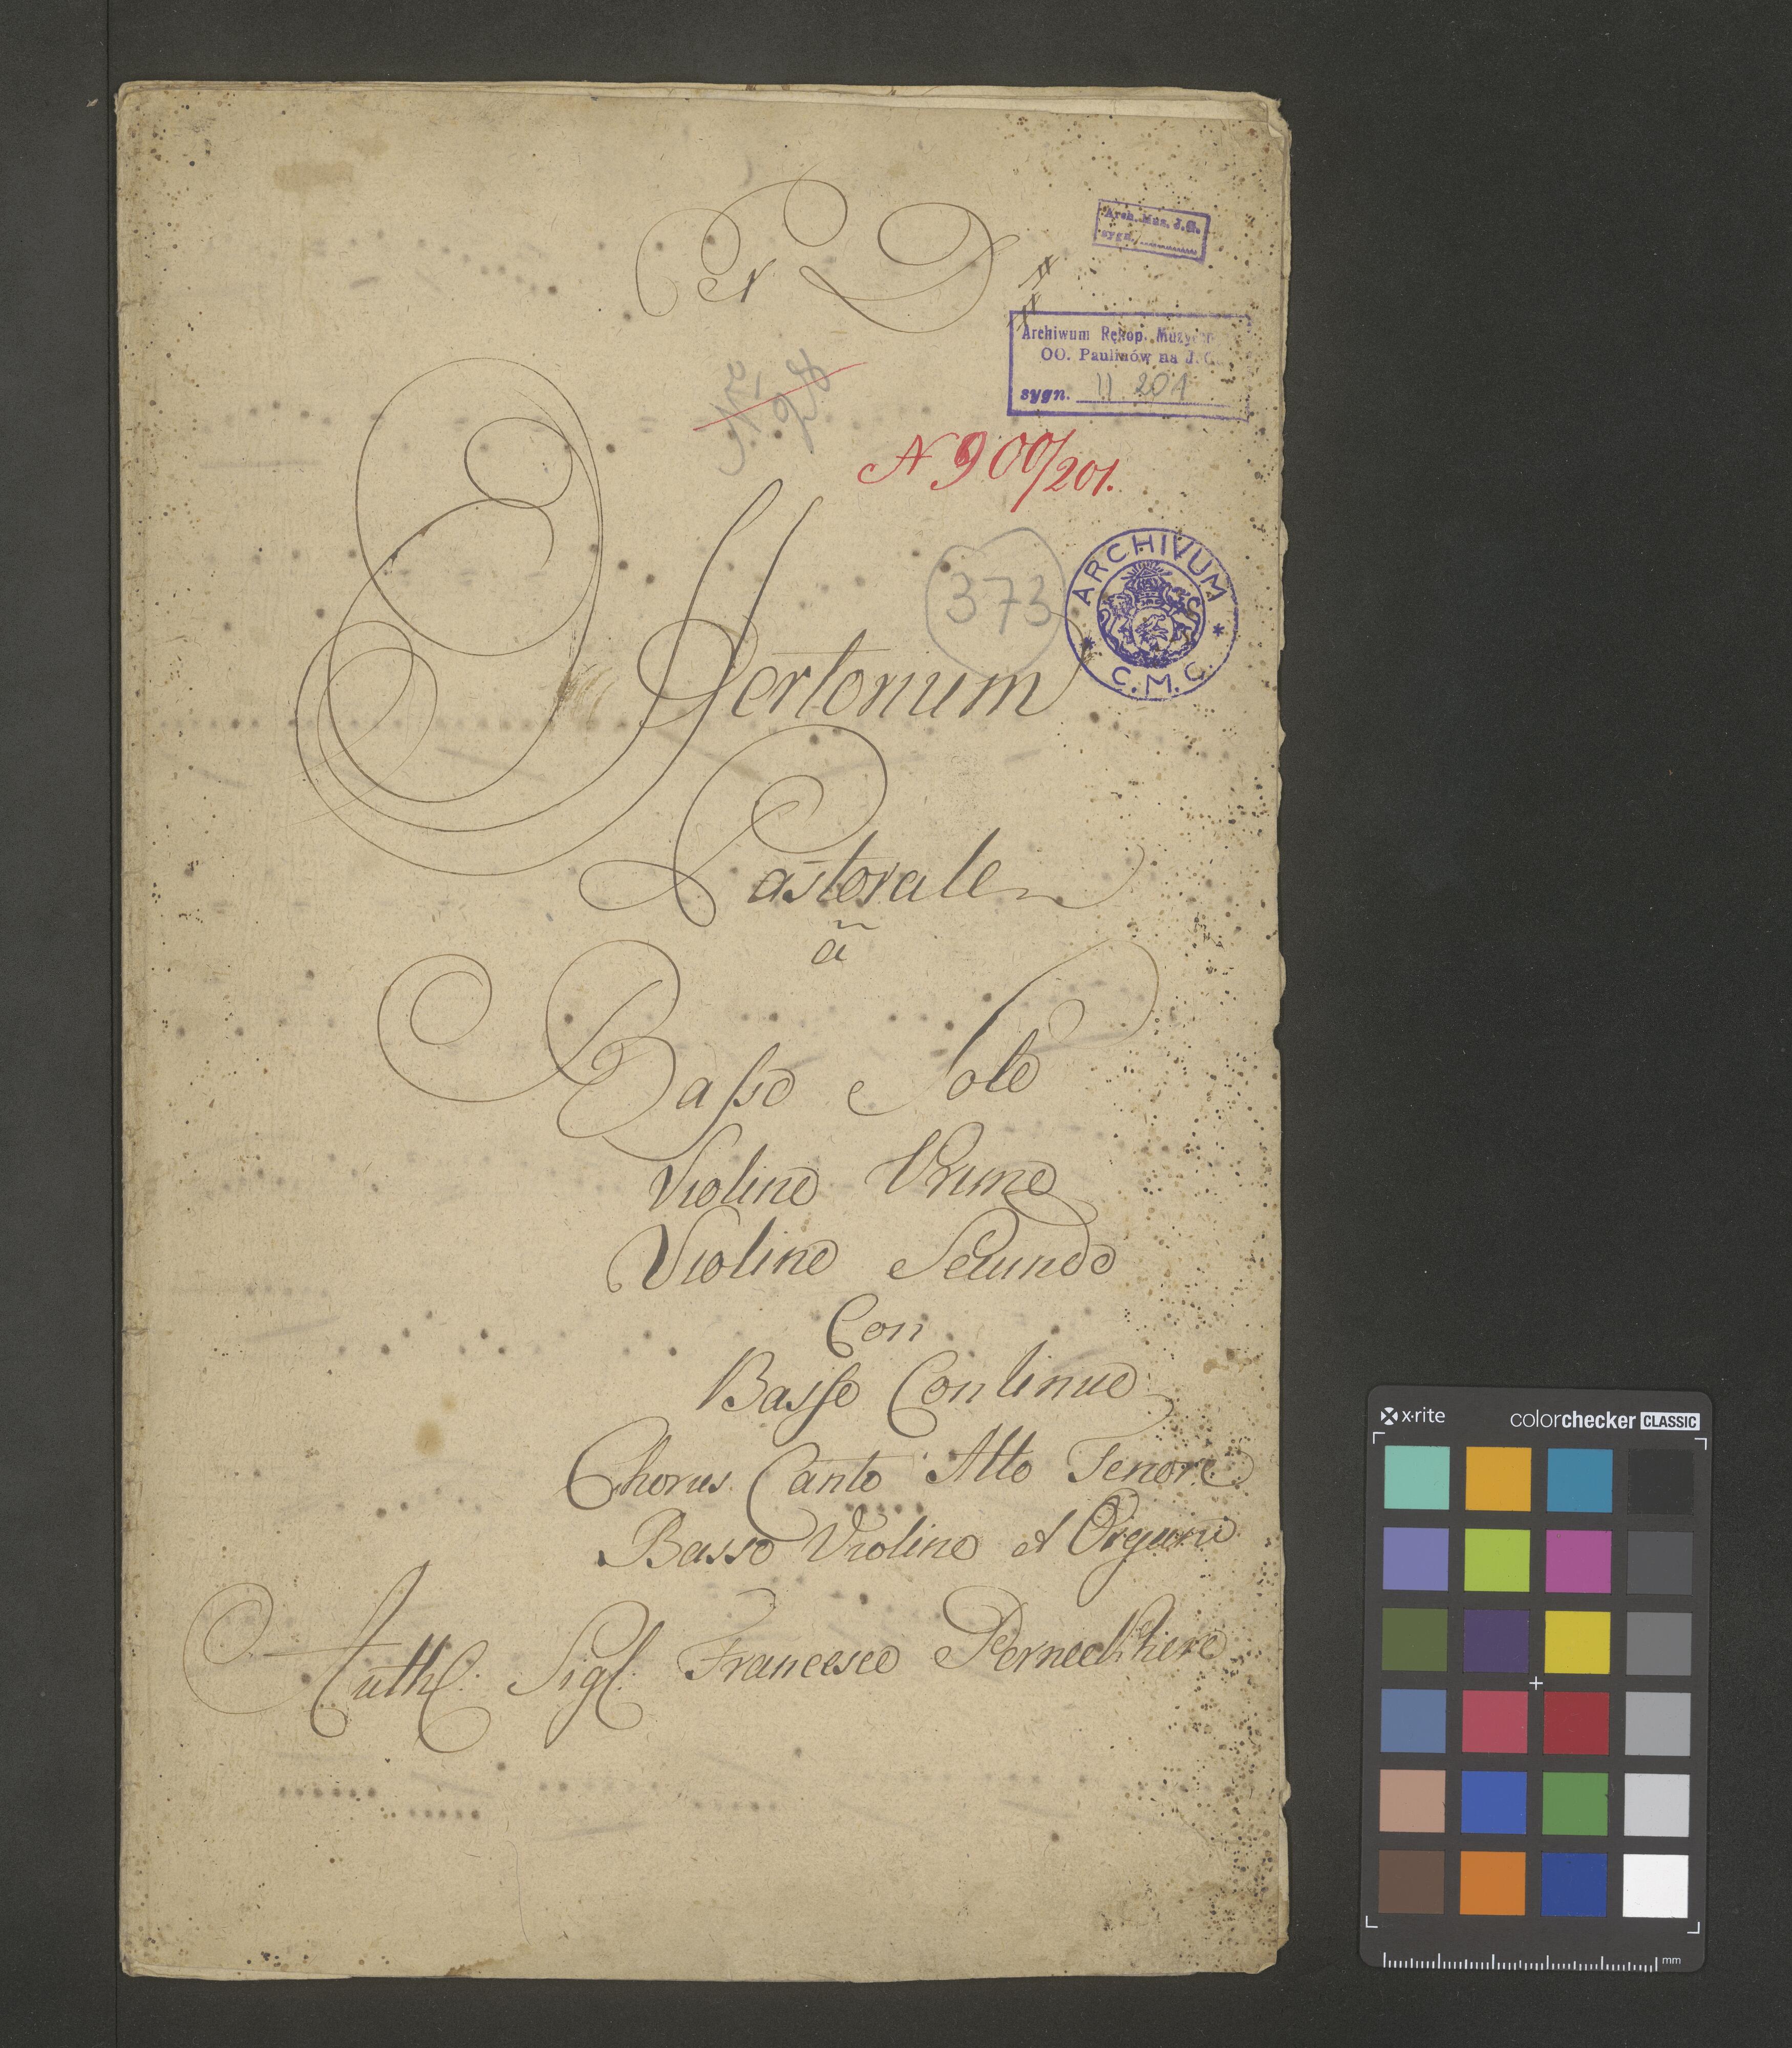 Ex D ♯
♯
Arch. Mus. J.G.
sygn.
Archiwum Rękop. Muzycz
OO. Paulinów na J. G
sygn. II 201
N 900/201.
373
ARCHIVUM
* C. M. C. *
Offertorium
Pastorale
ã
Basso Solo
Violino Primo
Violino Secundo
Con
Basso Continuo
Chorus Canto Alto Tenore
Basso Violino et Organo
Auth: Sig: Francesco Pernechhere
x·rite
colorchecker CLASSIC
mm